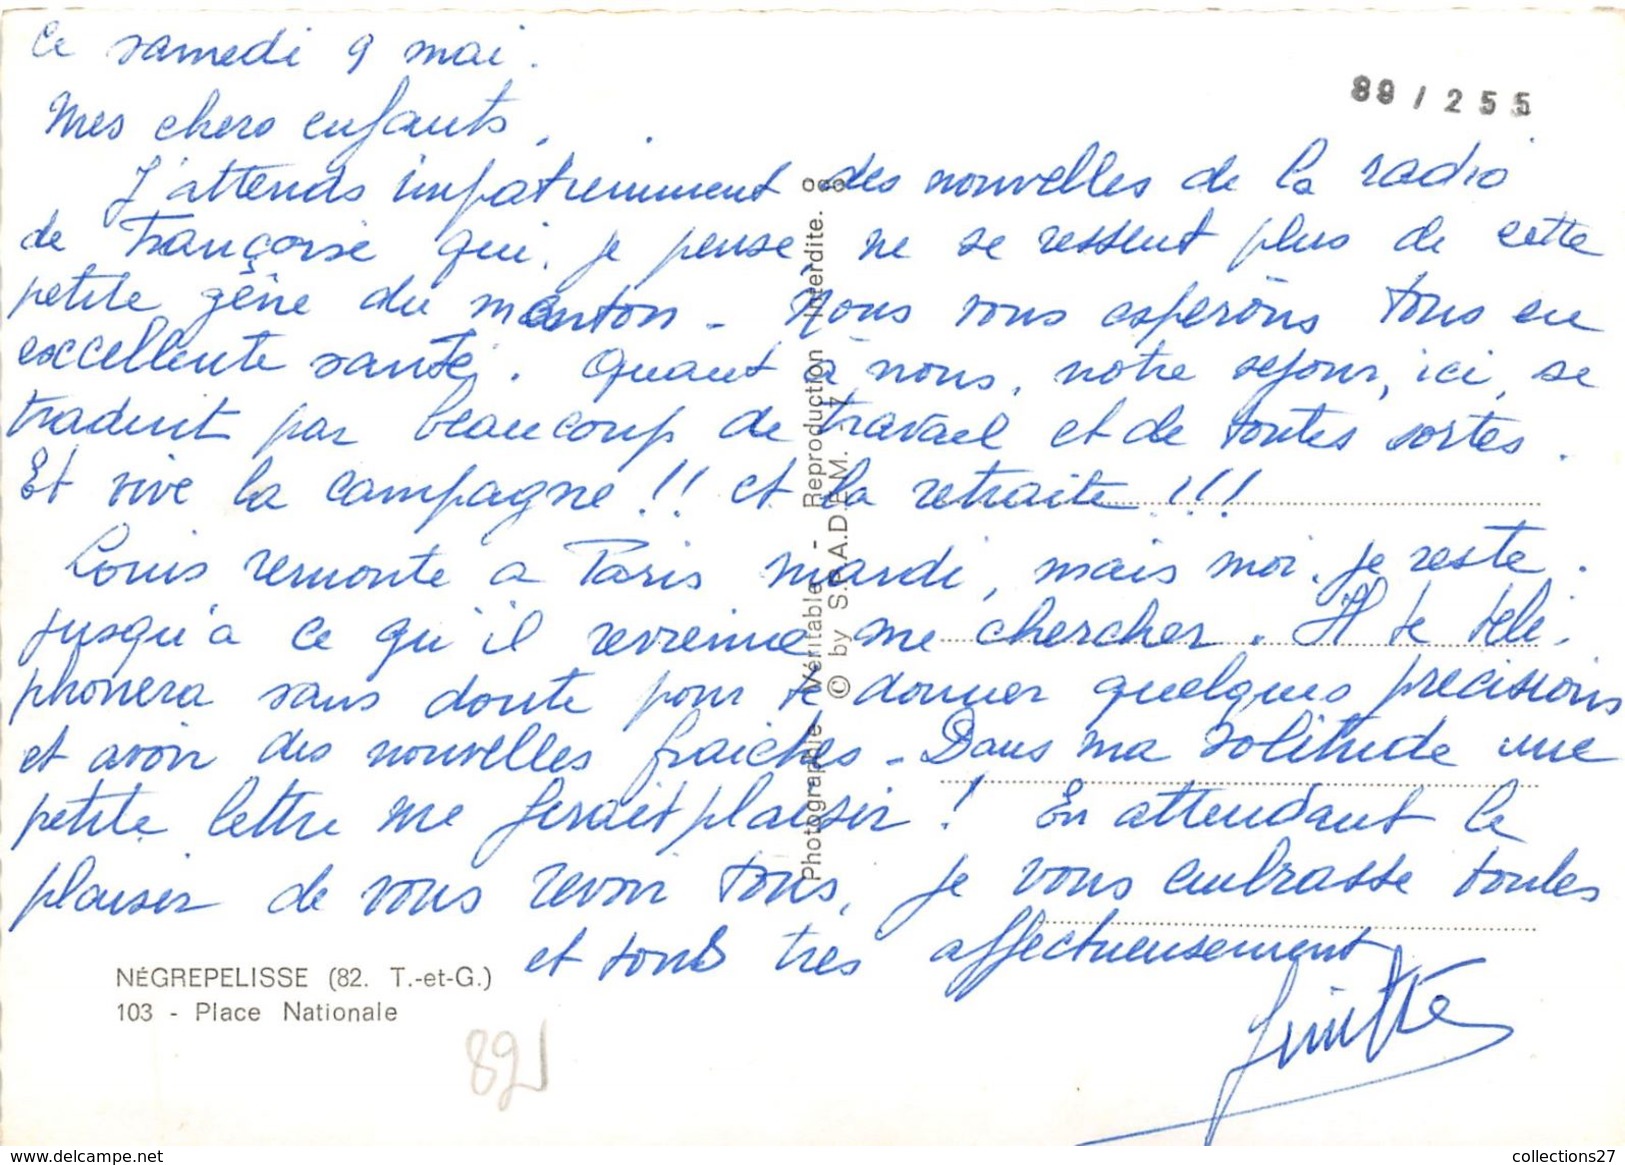 Ce samedi 9 mai.
89 / 255
Mes chers enfants,
J'attends impatiemment des nouvelles de la radio
de Françoise qui, je pense ne se ressent plus de cette
petite gêne du menton - Nous vous espérons tous en
excellente santé. Quant à nous, notre séjour, ici, se
traduit par beaucoup de travail et de toutes sortes.
Et vive la campagne !! et la retraite !!!
Louis remonte à Paris mardi, mais moi, je reste.
jusqu'à ce qu'il revienne me chercher. Il te télé-
phonera sans doute pour te donner quelques précisions
et avoir des nouvelles fraîches - Dans ma solitude une
petite lettre me ferait plaisir ! En attendant le
plaisir de vous revoir tous, je vous embrasse toutes
et tous très affectueusement
Ginette
Photographie Véritable - Reproduction Interdite.
© by S.P.A.D.E.M. - 7 -
NÉGREPELISSE (82. T.-et-G.)
103 - Place Nationale
82
collections27